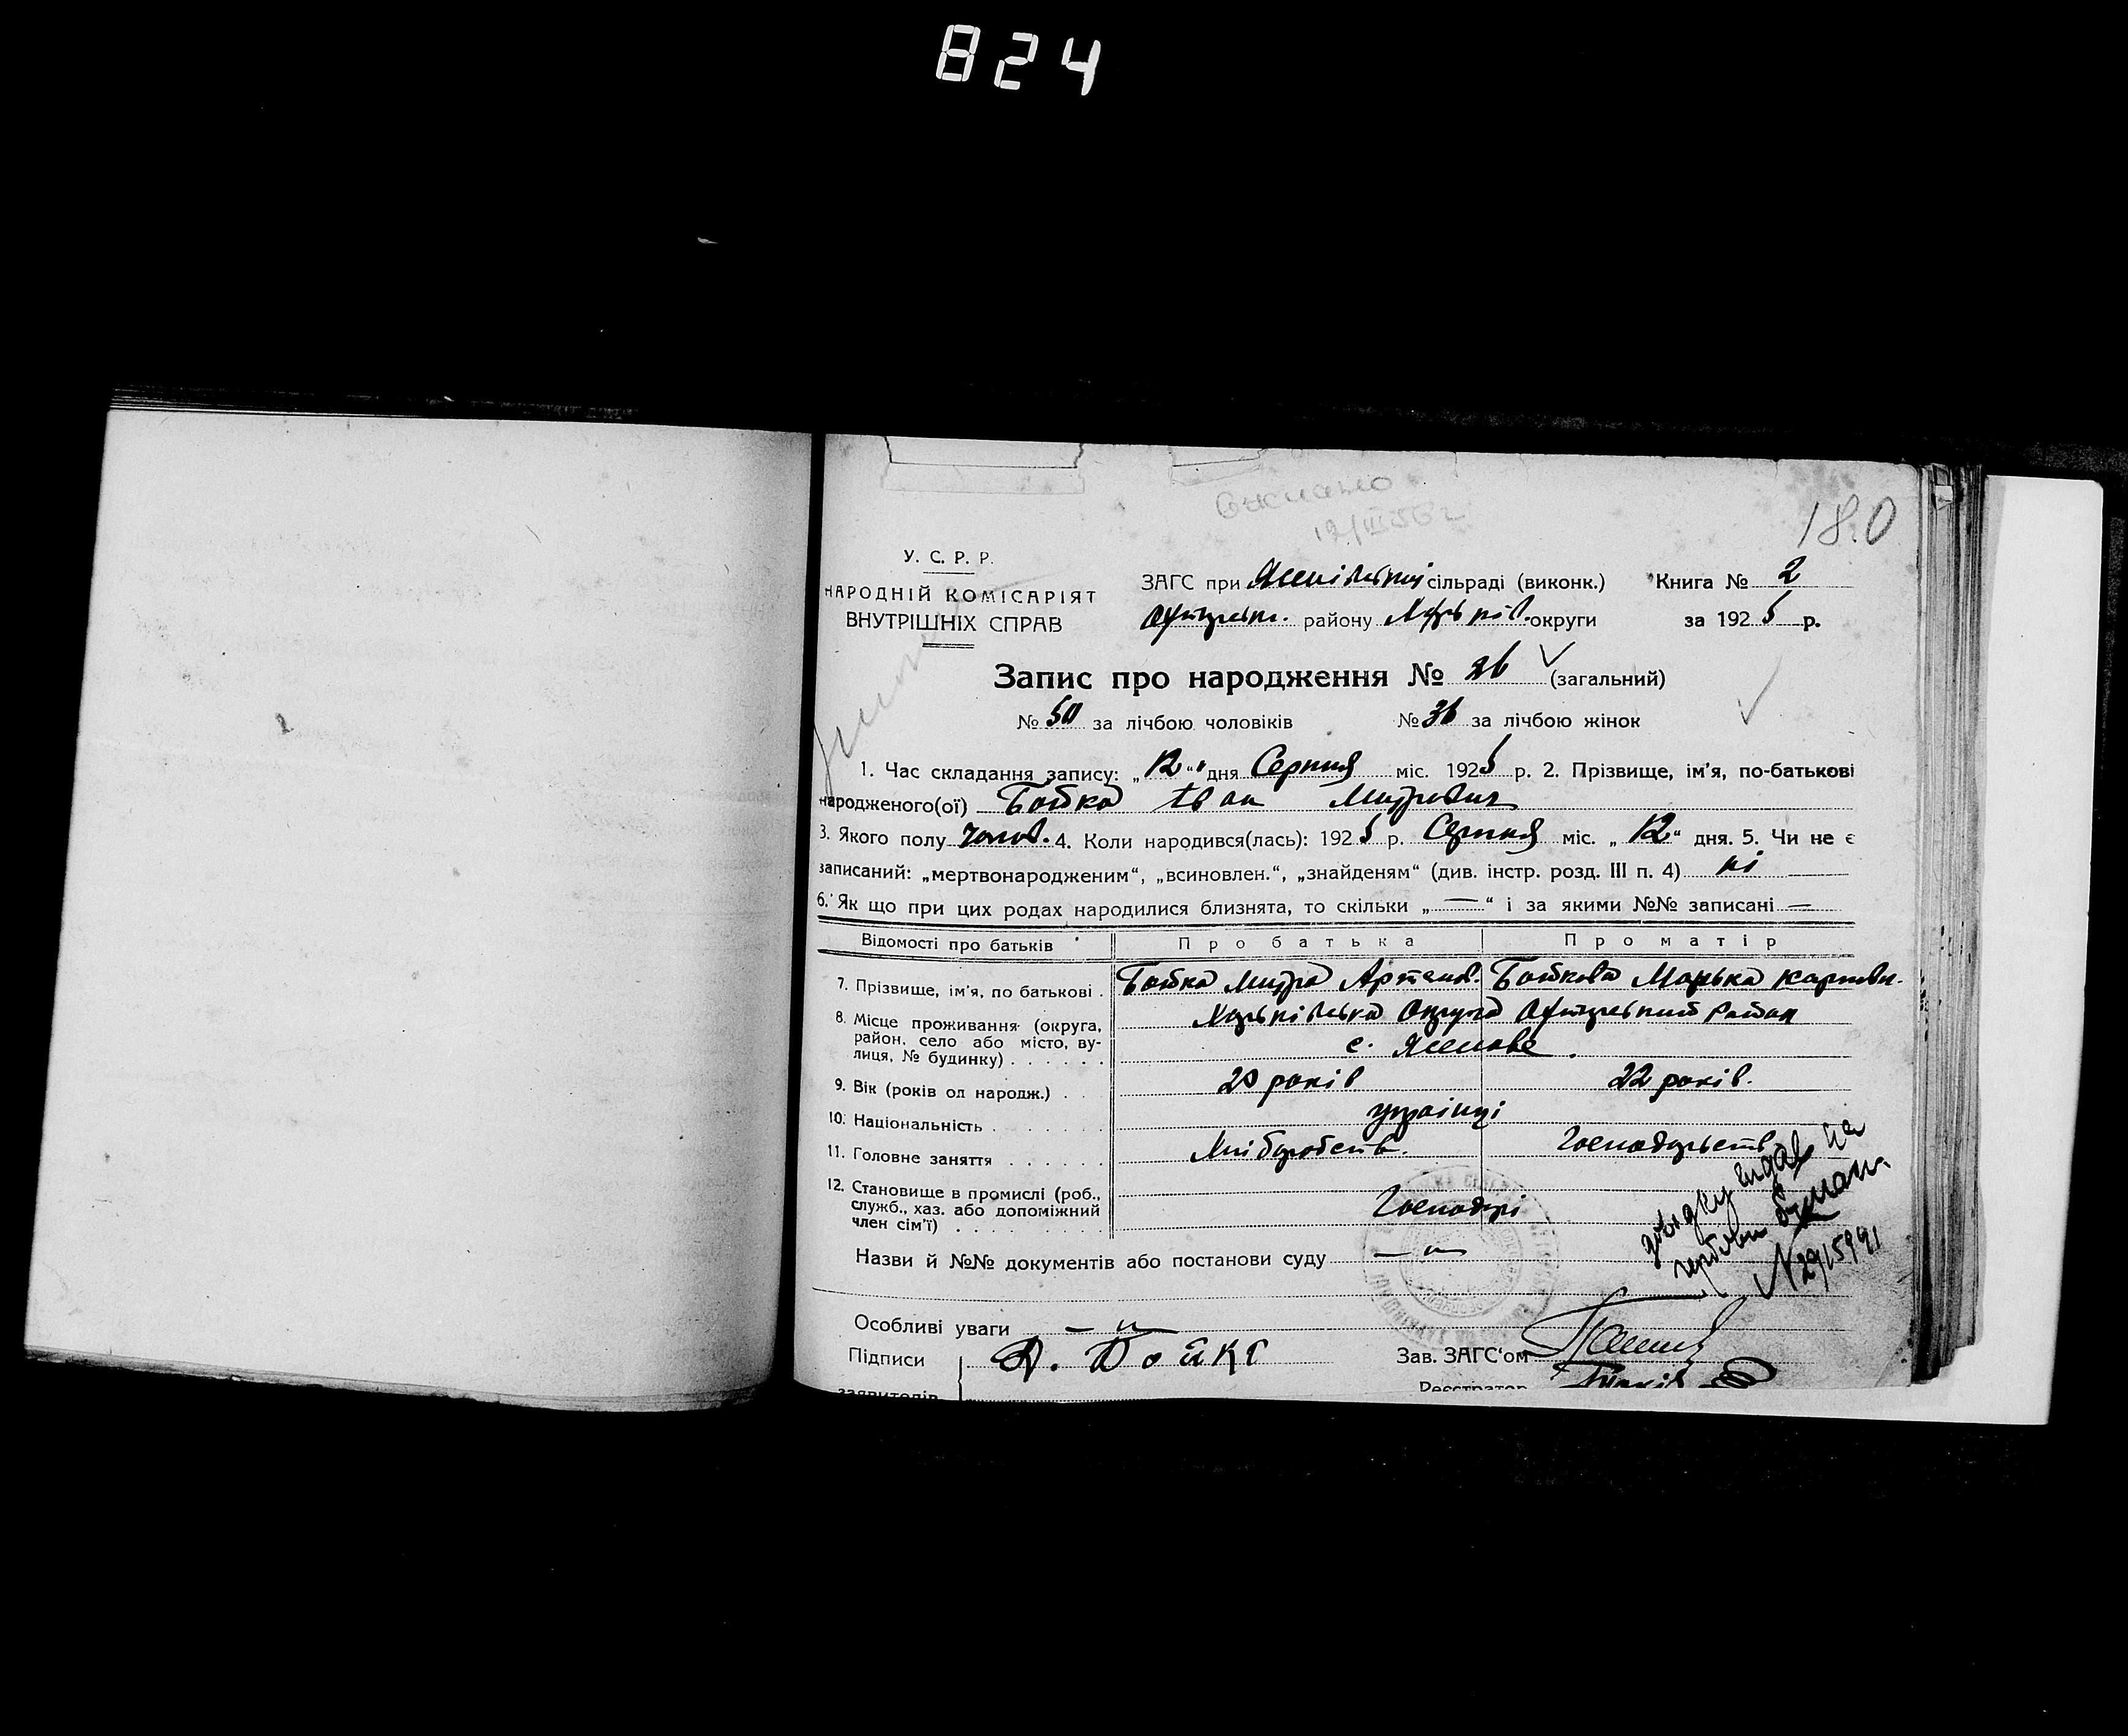 824
180
У. С. Р. Р.
НАРОДНІЙ КОМІСАРІЯТ
ВНУТРІШНІХ СПРАВ
ЗАГС при сільраді (виконк.) Книга № 2
району округи за 1925 р.
Запис про народження № (загальний)
№ 50 за лічбою чоловіків № 36 за лічбою жінок
1. Час складання запису: „12“ дня Серпня міс. 1925 р. 2. Прізвище, ім'я, по-батькові
народженого(ої) Бойко Іван Митрович
3. Якого полу чолов. 4. Коли народився(лась): 1925 р. Серпня міс. „12“ дня. 5. Чи не є
записаний: „мертвонародженим“, „всиновлен.“, „знайденям“ (див. інстр. розд. III п. 4) ні
6. Як що при цих родах народилися близнята, то скільки „—“ і за якими №№ записані —
Відомості про батьків Про батька Про матір
7. Прізвище, ім'я, по батькові . Бойко Митро Артемов. Бойкова Марька
8. Місце проживання (округа, район, село або місто, вулиця, № будинку) . . . . . . Харьківська Округа Охтирський Район
с. Ясенове
9. Вік (років од народж.) . . 20 років 22 років.
10. Національність . . . . . . українці
11. Головне заняття . . . . . . Хліборобств. Господарств
12. Становище в промислі (роб., служб., хаз. або допоміжний член сім'ї) . . . . . . . . Господарі
Назви й №№ документів або постанови суду — „ —
Особливі уваги — „ —
Підписи Бойко Зав. ЗАГС'ом
заявителів Реєстратор